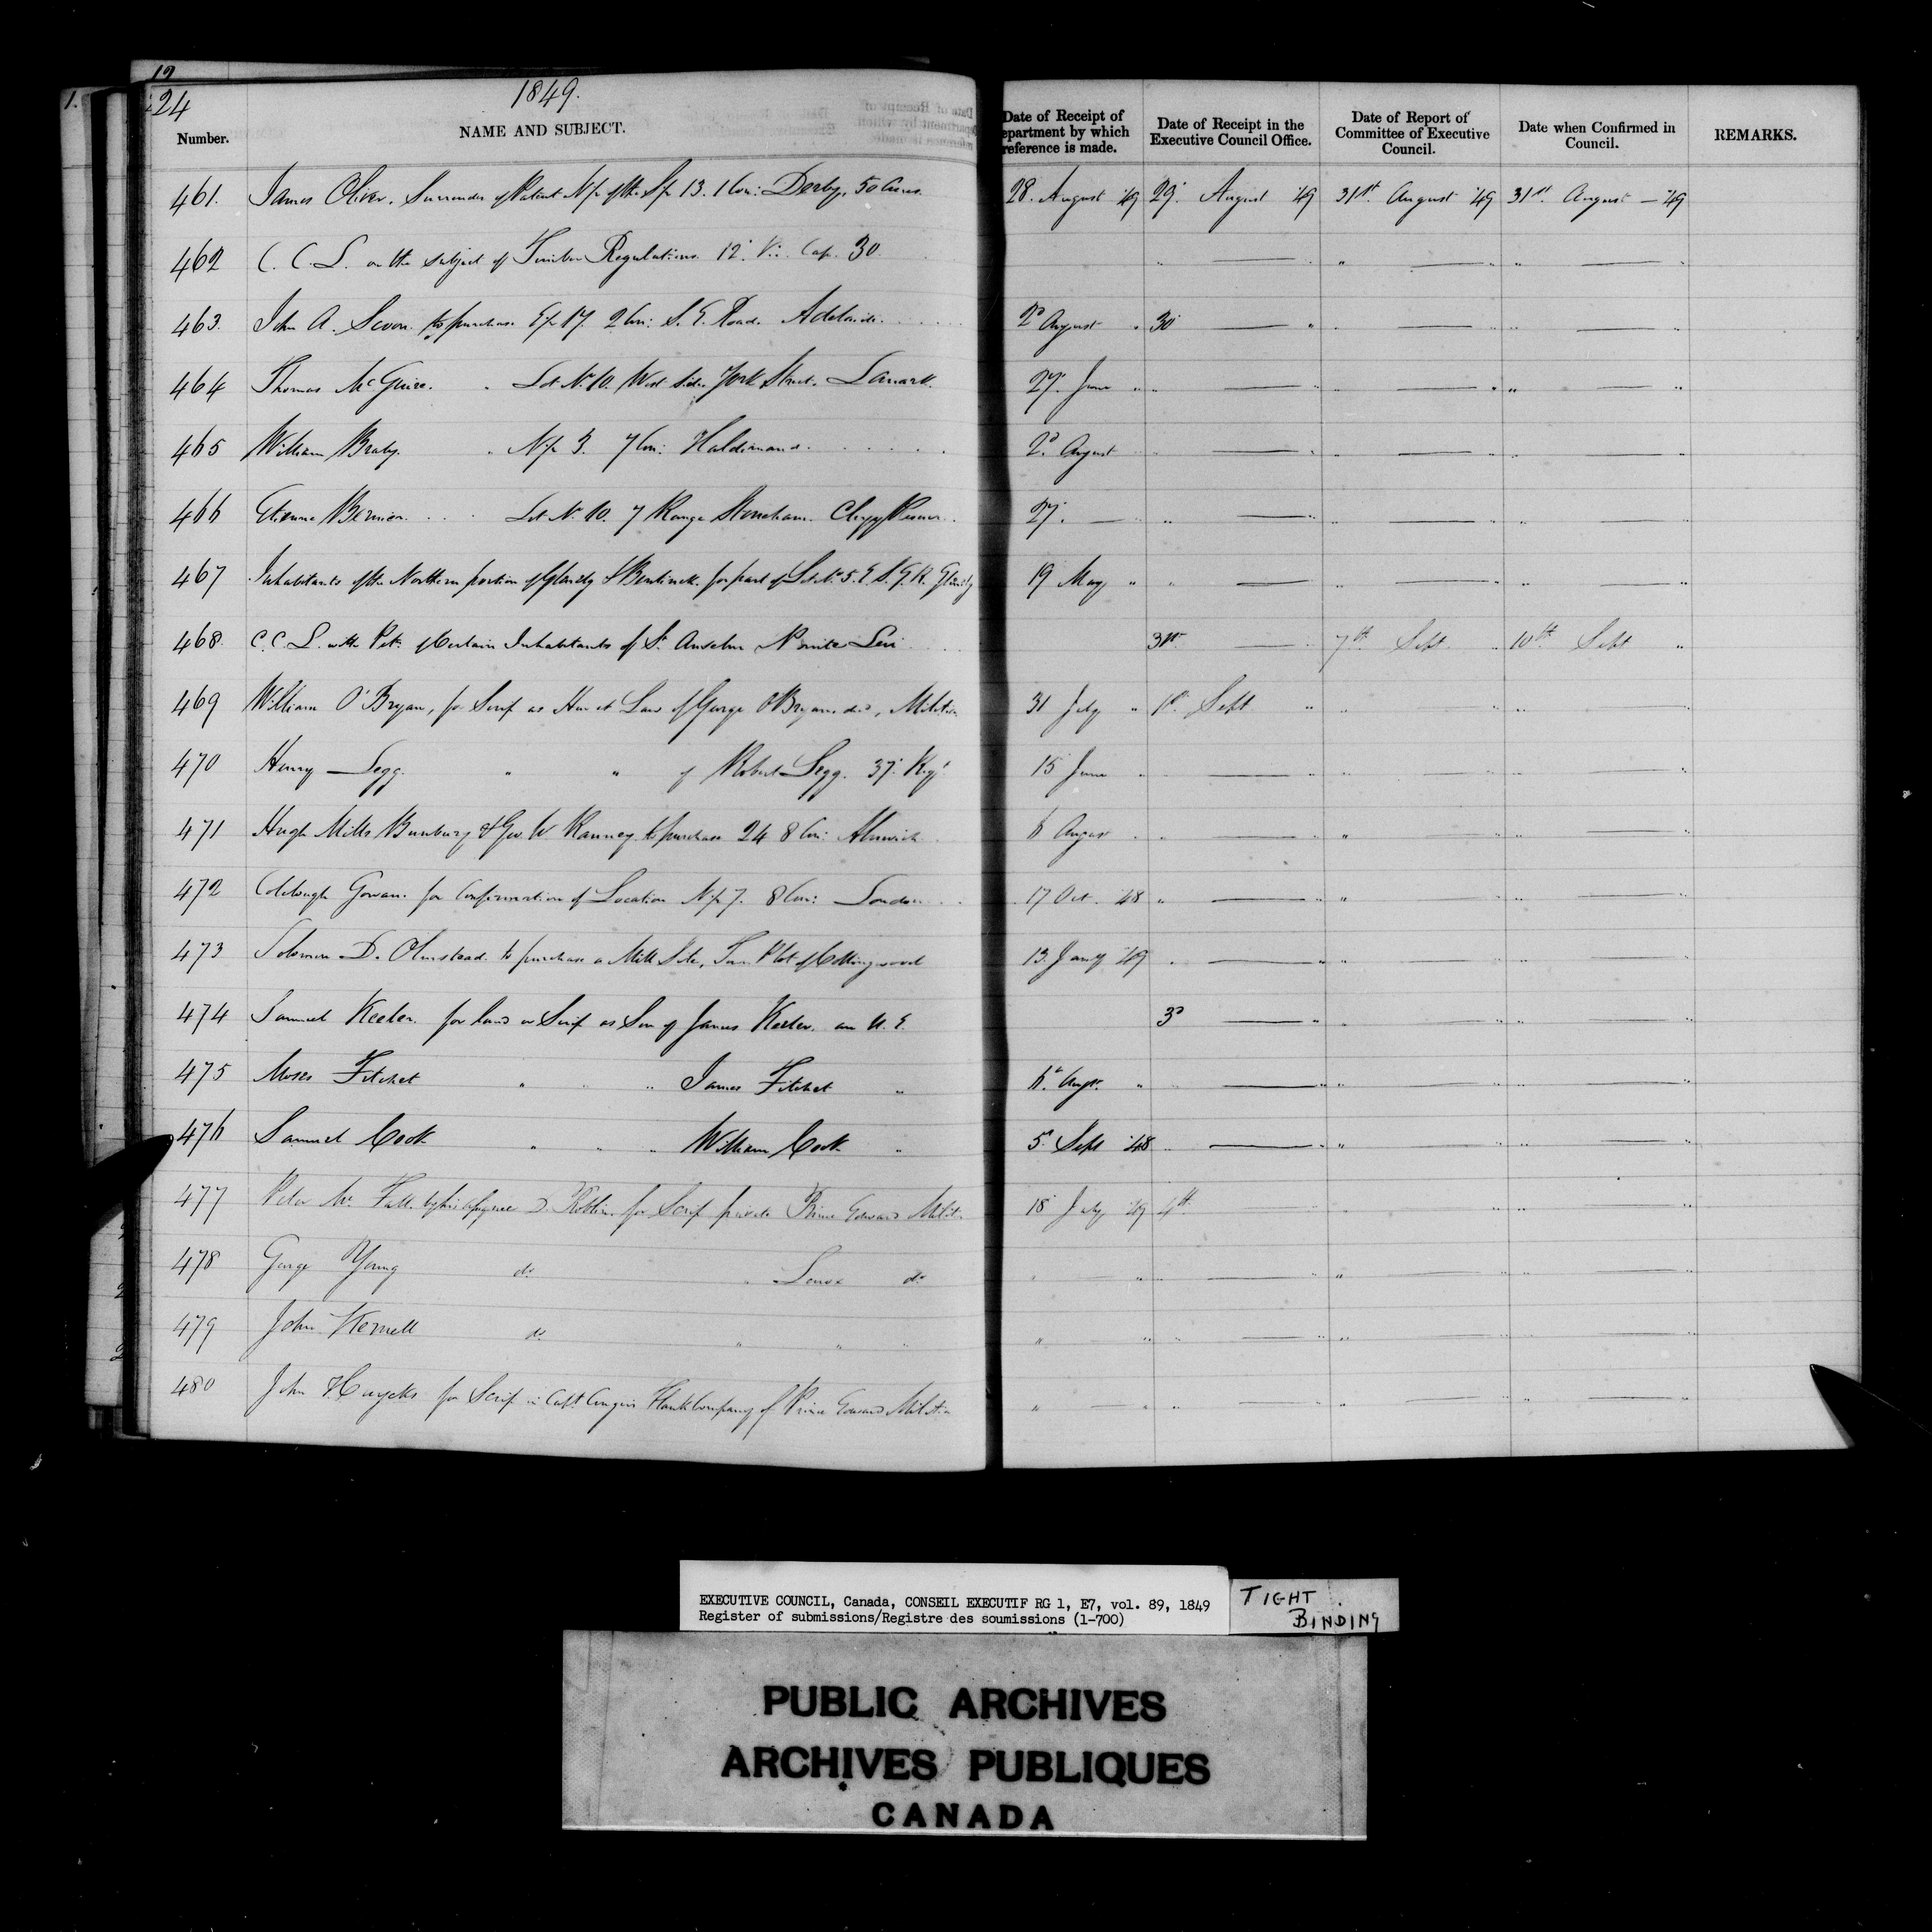 24
1849.
Number. NAME AND SUBJECT. Date of Receipt of Department by which reference is made. Date of Receipt in the Executive Council Office. Date of Report of Committee of Executive Council. Date when Confirmed in Council. REMARKS.
461. James Oliver. Surrender of Patent N½ of the S½ 13. 1 Con: Derby. 50 Acres. 28. August '49 29. August '49 31st. August '49 31st. August — '49
462 C. C. L. on the subject of Timber Regulations. 12. Vic. Cap. 30 " — " " — " " — "
463. John A. Scoon. to purchase E½ 17 2 Con: S. E. Road. Adelaide. 2d August " 30 — " " — " " — "
464 Thomas McGuire. " Lot No. 10. West side York Street. Lanark. 27. June " " — " " — " " — "
465 William Braby. " N½ 3. 7 Con: Haldimand. 2d. August " — " " — " " — "
466 Etienne Bernier. Lot No. 10. 7 Range Stoneham. Clergy Reserve. 27. — " — " " — " " — "
467 Inhabitants of the Northern portion of Glenelg & Bentinck. for part of Lot No. 5. E S. G. R. Glenelg 19 May " " — " " — " " — "
468. C. C. L. with Petn. of Certain Inhabitants of St. Anselm Pointe Levi 31st — " 7th Sept. " 10th Sept "
469 William O'Bryan, for Scrip as Heir at Law of George O'Bryan. decd, Militia 31 July " 1st. Sept " " — " " — "
470 Henry Legg. " " of Robert Legg. 37. Regt 15 June " " — " " — " " — "
471 Hugh Mills Bunbury & Geo. W. Ranney. to purchase 24 8 Con: Alnwick 6 August " " — " " — " " — "
472 Colclough Gowan. for Confirmation of Location N½ 7. 8 Con: London 17 Oct. '48 " — " " — " " — "
473 Solomon D. Olmstead. to purchase a Mill Site, Town Plot of Collingwood 13. Jany '49 " — " " — " " — "
474 Samuel Keeler. for Land or Scrip as Son of James Keeler. an U. E. 3d — " " — " " — "
475 Moses Fitchet " " " James Fitchet " 6. Augt. " " — " " — " " — "
476 Samuel Cook " " " William Cook " 5. Sept '48 " — " " — " " — "
477 Peter Mc. Fall. by his assignee D. Roblin. for Scrip private Prince Edward Milit. 18 July '49 4th. — " — " " — "
478 George Young do " do " — " " — " " — " " — "
479 John do " " " " " " — " " — " " — "
480 John Huycks for Scrip in Capt. Flank Company of Prince Edward Militia " — " " — " " — " " — "
EXECUTIVE COUNCIL, Canada, CONSEIL EXECUTIF RG 1, E7, vol. 89, 1849
Register of submissions/Registre des soumissions (1-700)
TIGHT BINDING
PUBLIC ARCHIVES
ARCHIVES PUBLIQUES
CANADA